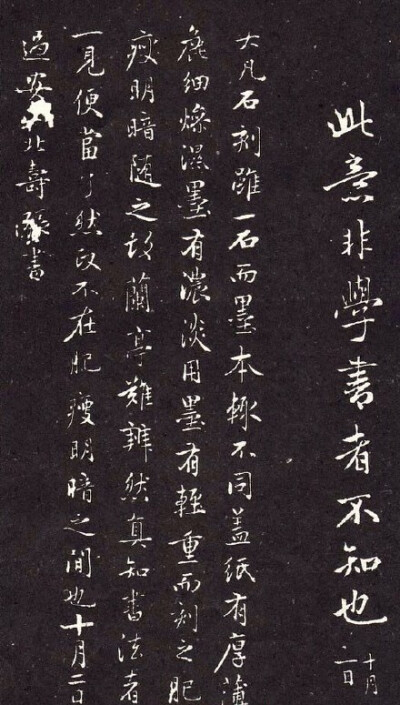 此意非學書者不知也
十月
二日
大凡石刻雖一石而墨本輙不同盖紙有厚薄
麁細燥濕墨有濃淡用墨有輕重而刻之肥
瘦明暗随之故蘭亭難辨然真知書法者
一見便當了然政不在肥瘦明暗之間也十月二日
過安北壽張書